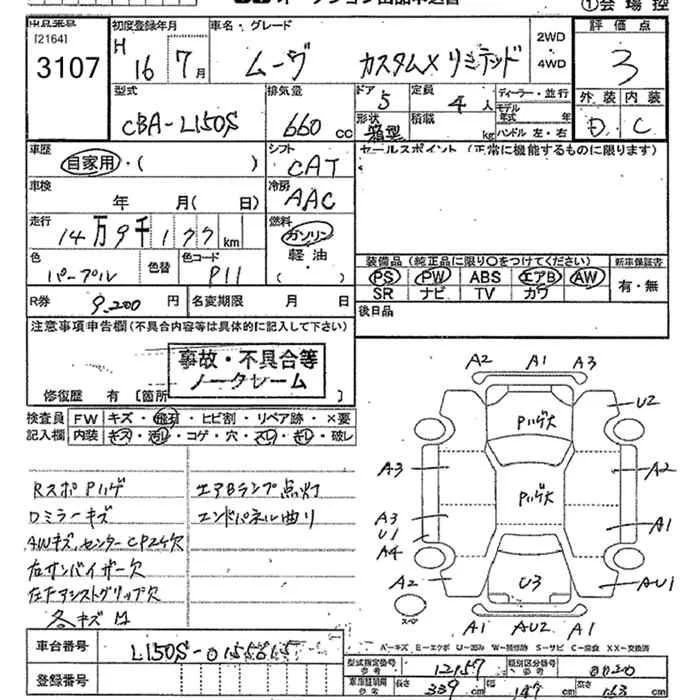 ①会場控
[2164]
3107
初度登録年月
H 16 7月
車名・グレード
ムーヴ カスタムX リミテッド
2WD
・4WD
評価点
3
外装 内装
D C
型式
CBA-L150S
排気量
660 cc
ドア 5
形状 箱型
定員 4 人
積載 kg
ディーラー・並行
モデル年式 年
ハンドル 左・右
車歴
自家用・( )
シフト
CAT
セールスポイント (正常に機能するものに限ります)
車検
年 月( 日)
冷房
AAC
走行
14万9千177km
燃料
ガソリン
軽油
( )
色
パープル
色替
色コード
P11
装備品 (純正品に限り○をつけてください)
PS PW ABS エアB AW
SR ナビ TV カワ
新車保証書
有・無
R券 9,200円
名変期限 月 日
後日品
注意事項申告欄(不具合内容等は具体的に記入して下さい)
事故・不具合等
ノークレーム
修復歴 有 [箇所 ]
検査員 FW キズ・飛石・ヒビ割・リペア跡・×要
記入欄 内装 キズ・汚レ・コゲ・穴・スレ・キレ・破レ
Rスポ Pハゲ
エアBランプ点灯
Dミラーキズ
エンドパネル曲り
AWキズ、センターCP2ケ欠
右サンバイザー欠
左Fアシストグリップ欠
各キズ凹
A2 A1 A3
U2
Pハゲ大
A3
A2
Pハゲ大
A3
U1
A1
A4
A2
U3
AU1
スペア
A1 AU2 A1
A=キズ E=エクボ U=凹み W=補修跡 S=サビ C=腐食 XX=交換済
車台番号
L150S-0155615
登録番号
型式指定番号
参考
12157
類別区分番号
参考
0020
車庫証明用
参考
長さ 339 cm
幅 147
高さ 163